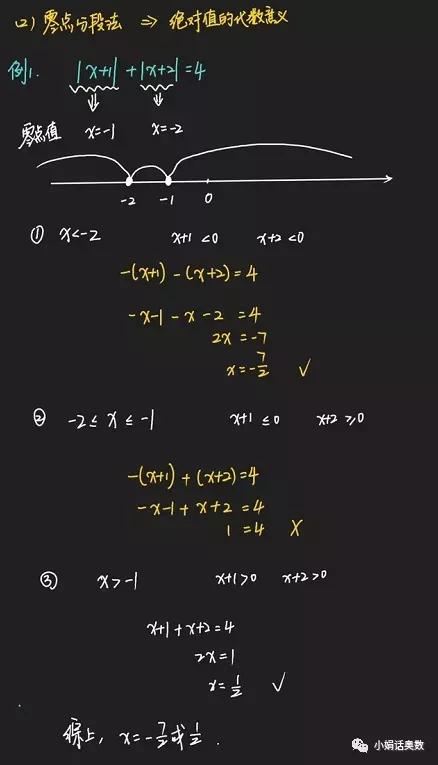 (2) 零点分段法 ⇒ 绝对值的代数意义
例1. |x+1| + |x+2| = 4
⇓ ⇓
零点值 x=-1 x=-2
-2 -1 0
① x<-2 x+1 <0 x+2 <0
-(x+1) - (x+2) = 4
-x-1 - x - 2 = 4
2x = -7
x = -7/2 ✓
② -2 ≤ x ≤ -1 x+1 ≤ 0 x+2 ≥ 0
-(x+1) + (x+2) = 4
-x-1 + x + 2 = 4
1 = 4 X
③ x > -1 x+1 > 0 x+2 > 0
x+1 + x+2 = 4
2x = 1
x = 1/2 ✓
综上, x = -7/2 或 1/2 .
小娟话奥数